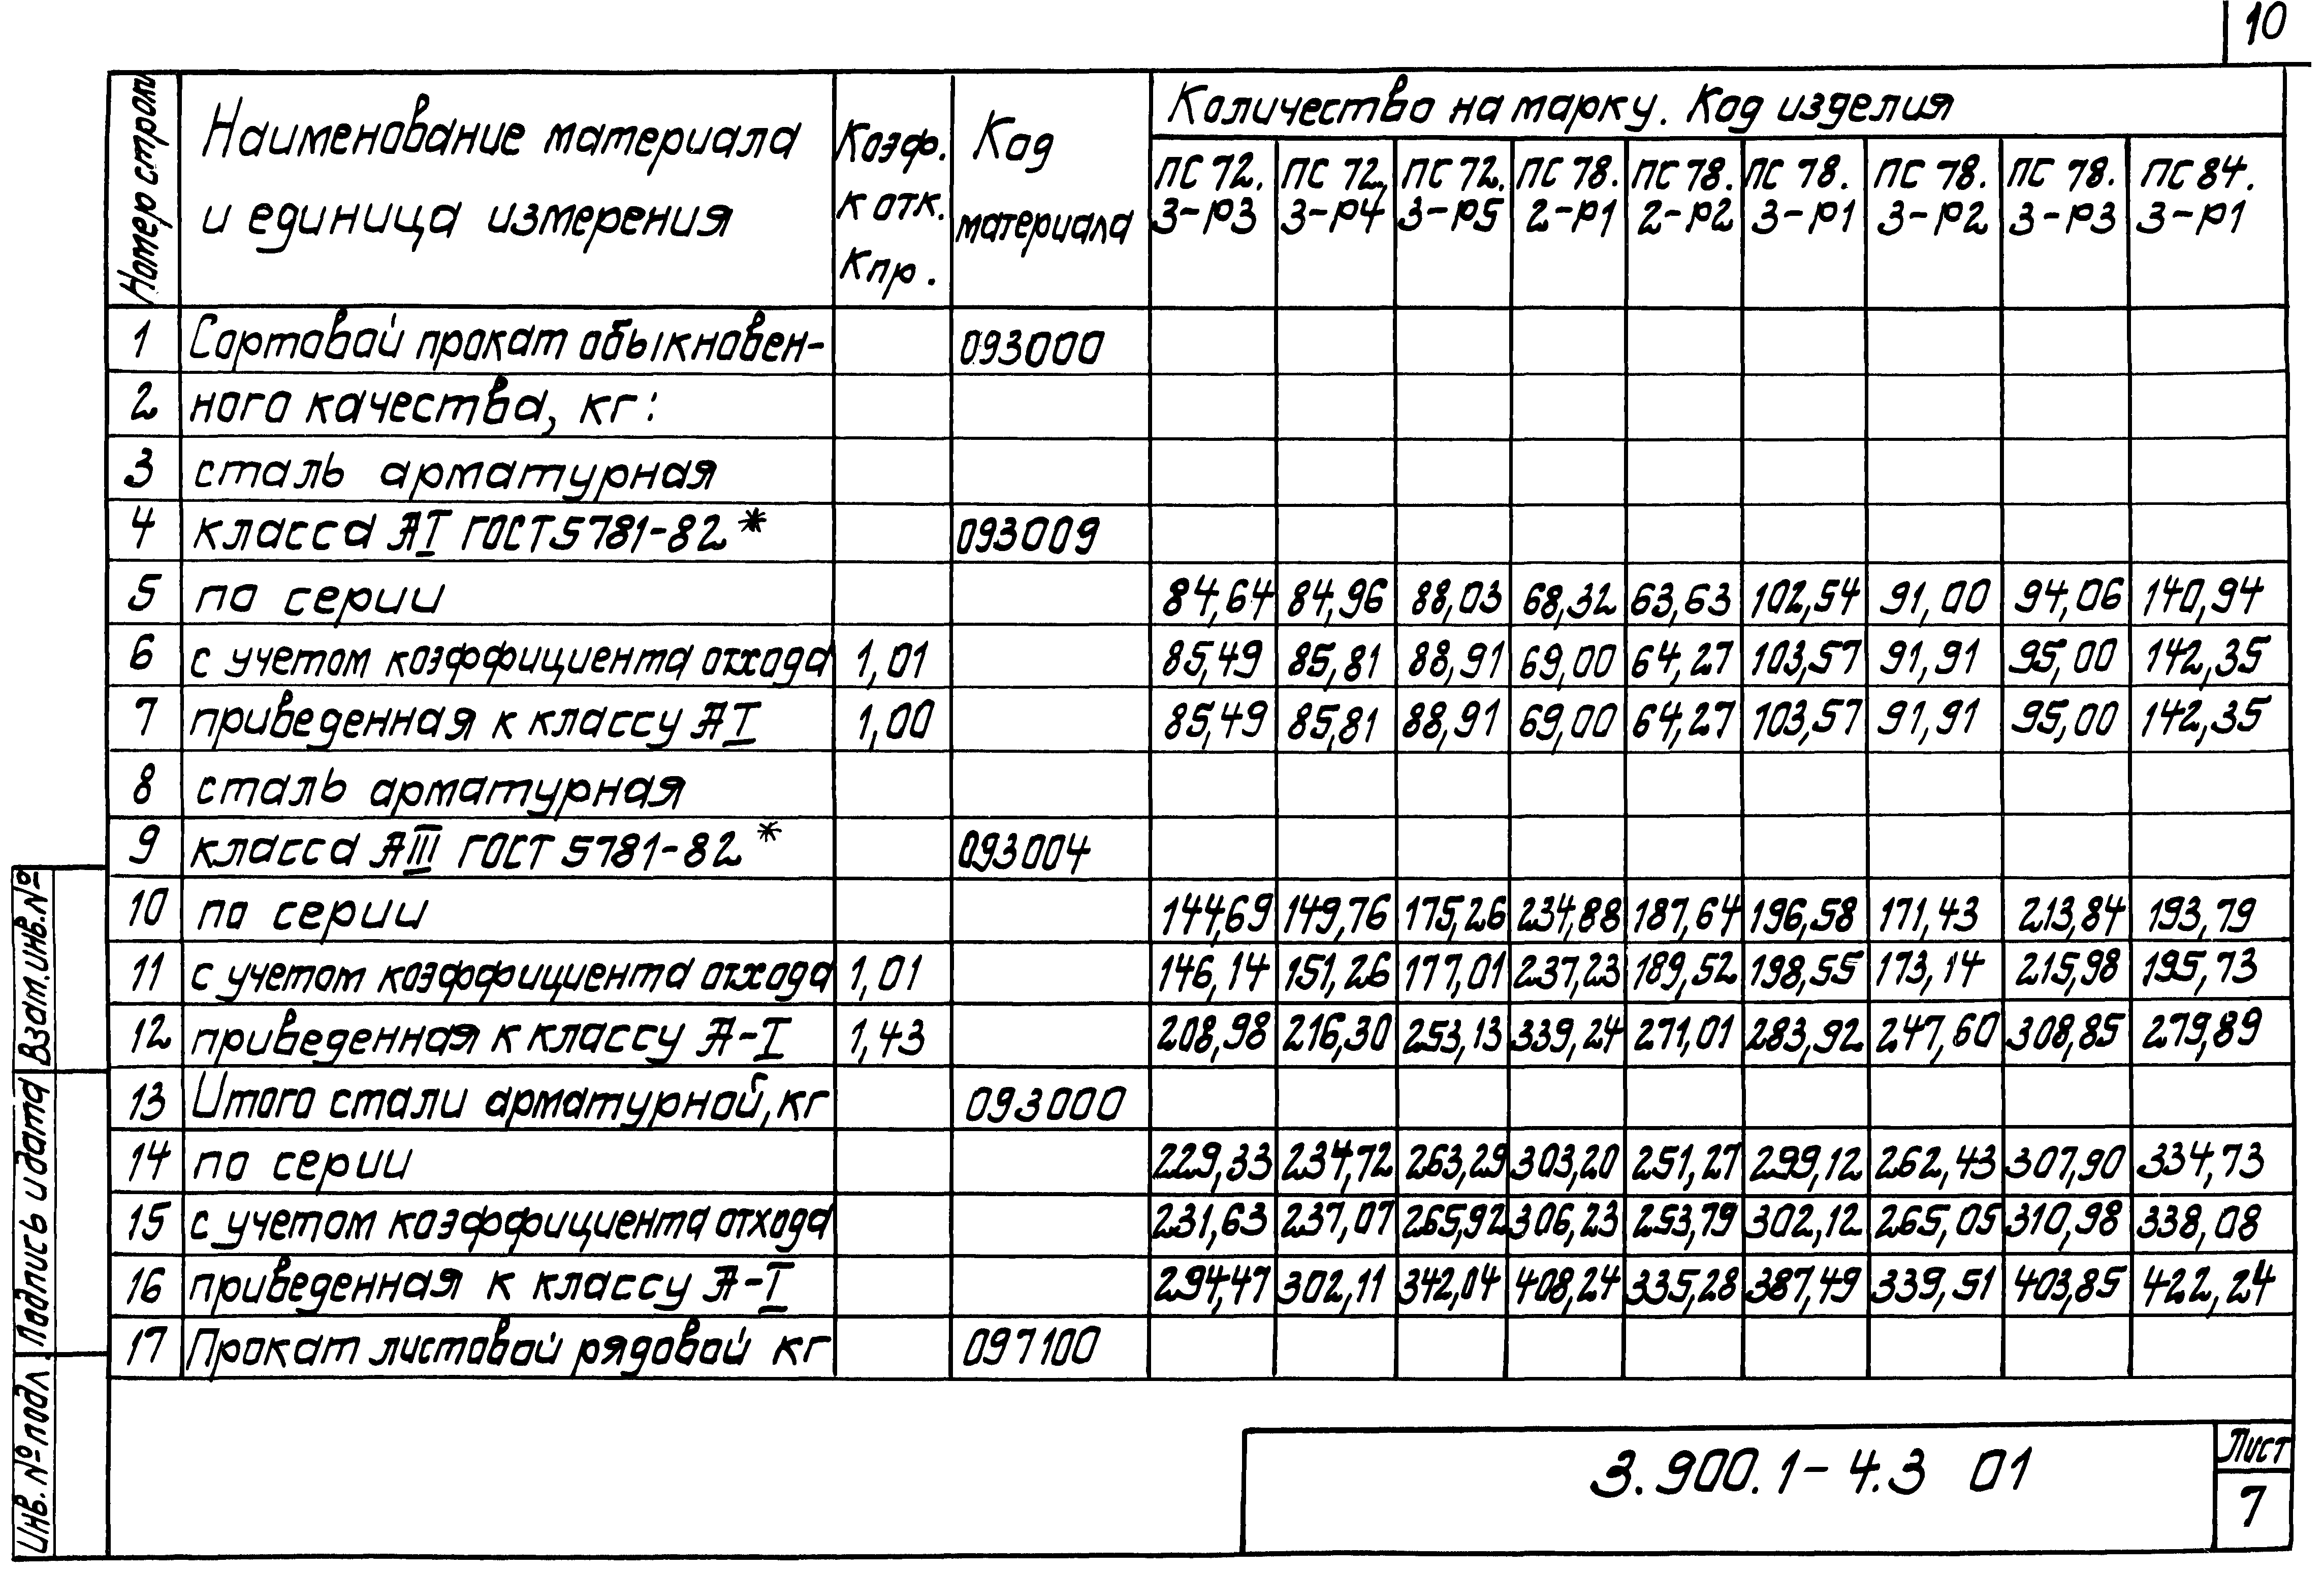 10
Номер строки
Наименование материала
и единица измерения
Коэф.
к отк.
Кпр.
Код
материала
Количество на марку. Код изделия
ПС 72. 3-Р3
ПС 72. 3-Р4
ПС 72. 3-Р5
ПС 78. 2-Р1
ПС 78. 2-Р2
ПС 78. 3-Р1
ПС 78. 3-Р2
ПС 78. 3-Р3
ПС 84. 3-Р1
1 Сортовой прокат обыкновен- 093000
2 ного качества, кг:
3 сталь арматурная
4 класса АI ГОСТ 5781-82* 093009
5 по серии 84,64 84,96 88,03 68,32 63,63 102,54 91,00 94,06 140,94
6 с учетом коэффициента отхода 1,01 85,49 85,81 88,91 69,00 64,27 103,57 91,91 95,00 142,35
7 приведенная к классу АI 1,00 85,49 85,81 88,91 69,00 64,27 103,57 91,91 95,00 142,35
8 сталь арматурная
9 класса АIII ГОСТ 5781-82* 093004
10 по серии 144,69 149,76 175,26 234,88 187,64 196,58 171,43 213,84 193,79
11 с учетом коэффициента отхода 1,01 146,14 151,26 177,01 237,23 189,52 198,55 173,14 215,98 195,73
12 приведенная к классу А-I 1,43 208,98 216,30 253,13 339,24 271,01 283,92 247,60 308,85 279,89
13 Итого стали арматурной, кг 093000
14 по серии 229,33 234,72 263,29 303,20 251,27 299,12 262,43 307,90 334,73
15 с учетом коэффициента отхода 231,63 237,07 265,92 306,23 253,79 302,12 265,05 310,98 338,08
16 приведенная к классу А-I 294,47 302,11 342,04 408,24 335,28 387,49 339,51 403,85 422,24
17 Прокат листовой рядовой кг 097100
Взам.инв.№
Подпись и дата
Инв.№ подл.
3.900.1-4.3 01
Лист
7